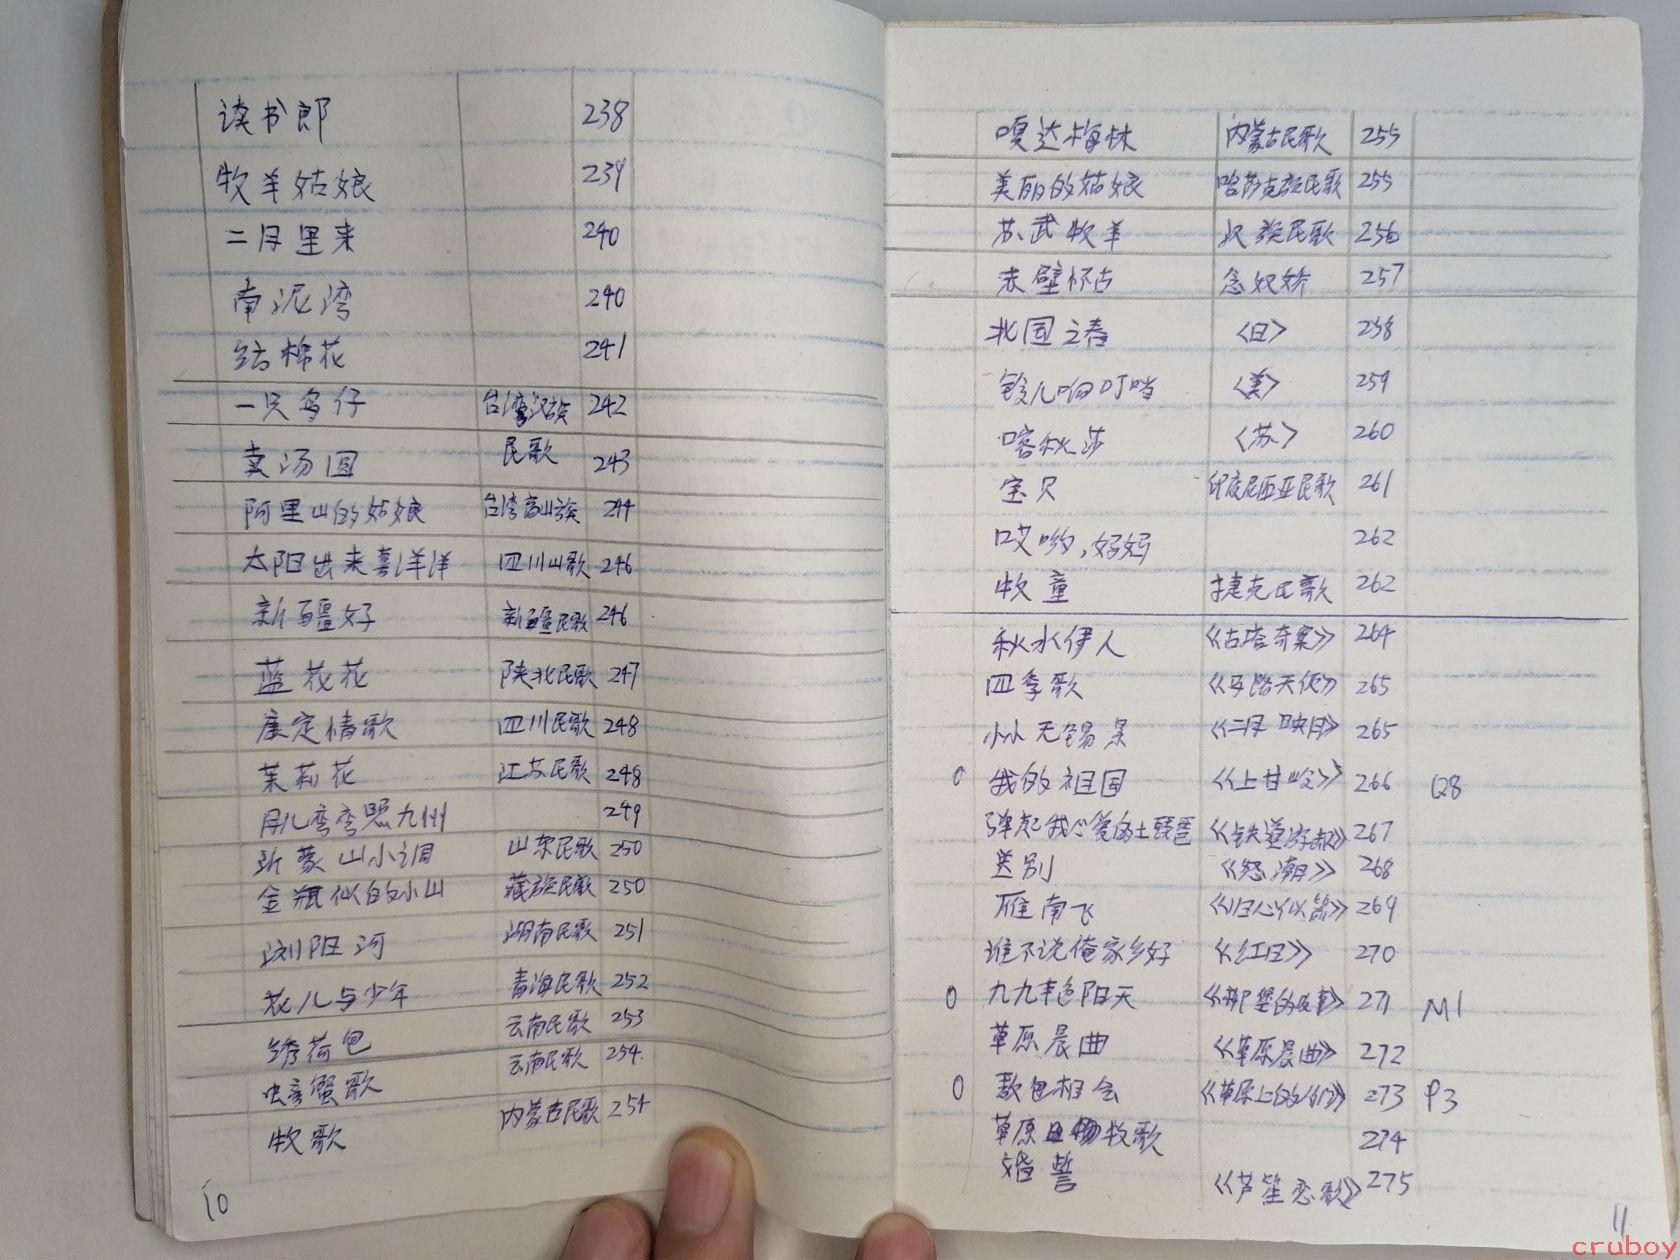 读书郎 238
牧羊姑娘 239
二月里来 240
南泥湾 240
结棉花 241
一只鸟仔 台湾汉族 242
卖汤圆 民歌 243
阿里山的姑娘 台湾高山族 244
太阳出来喜洋洋 四川山歌 246
新疆好 新疆民歌 246
蓝花花 陕北民歌 247
康定情歌 四川民歌 248
茉莉花 江苏民歌 248
月儿弯弯照九州 249
沂蒙山小调 山东民歌 250
金瓶似的小山 藏族民歌 250
浏阳河 湖南民歌 251
花儿与少年 青海民歌 252
绣荷包 云南民歌 253
螃蟹歌 云南民歌 254
牧歌 内蒙古民歌 254
10
嘎达梅林 内蒙古民歌 255
美丽的姑娘 哈萨克族民歌 255
苏武牧羊 汉族民歌 256
赤壁怀古 念奴娇 257
北国之春 〈日〉 258
铃儿响叮当 〈美〉 259
喀秋莎 〈苏〉 260
宝贝 印度尼西亚民歌 261
哎哟,妈妈 262
牧童 捷克民歌 262
秋水伊人 《古塔奇案》 264
四季歌 《马路天使》 265
小小无锡景 《二月映月》 265
0 我的祖国 《上甘岭》 266 Q8
弹起我心爱的土琵琶 《铁道游击》 267
送别 《怒潮》 268
雁南飞 《归心似箭》 269
谁不说俺家乡好 《红日》 270
0 九九丰色阳天 《柳堡的故事》 271 M1
草原晨曲 《草原晨曲》 272
0 敖包相会 《草原上的人们》 273 P3
草原牧歌 274
婚誓 《芦笙恋歌》 275
11
cruboy